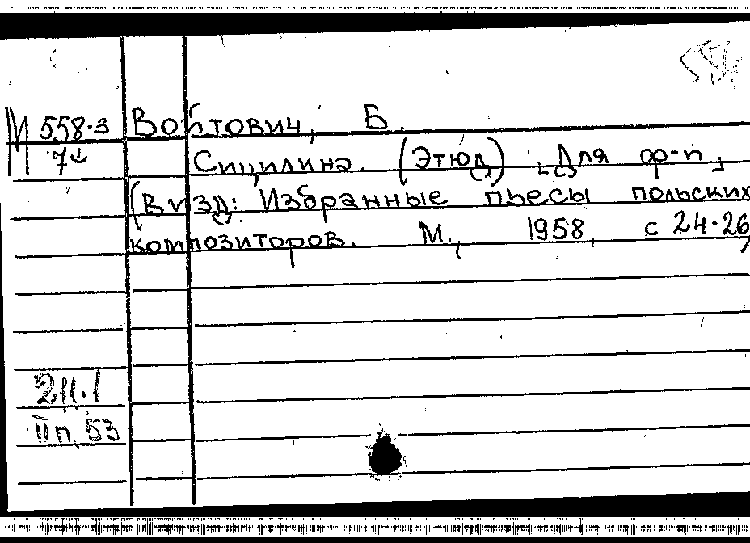 М 558-3 Войтович, Б.
7↓ Сицилина. (Этюд) [Для ф-п]
(В изд: Избранные пьесы польских
композиторов. М., 1958, с 24-26)
211.1
II п. 53